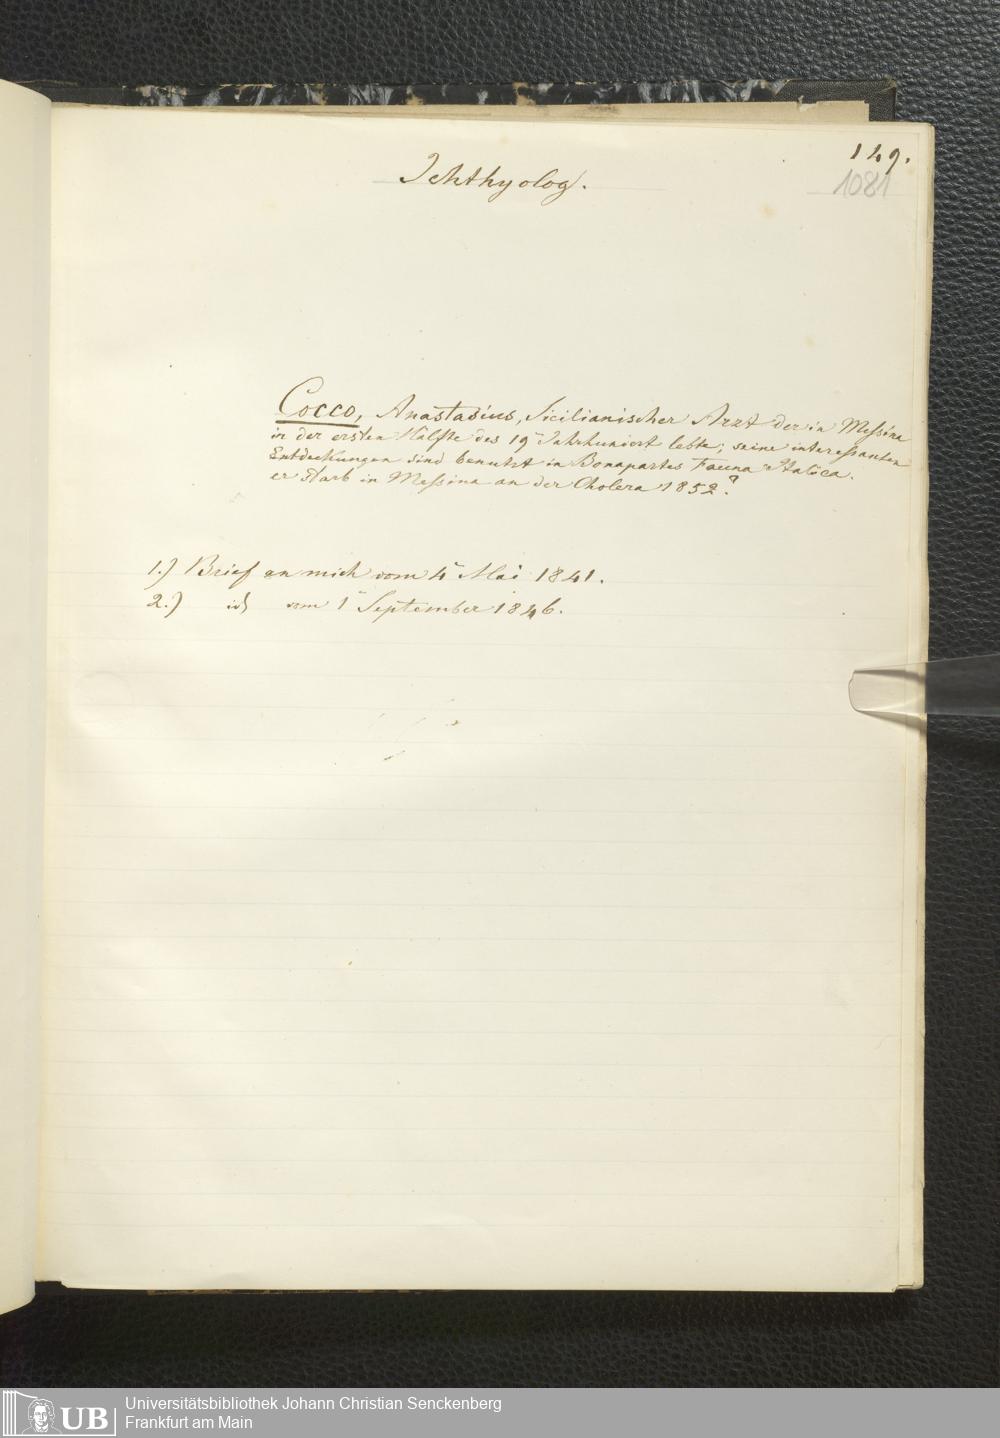 149.
Ichthyolog.
1081
Cocco, Anastasius, Sicilianischer Arzt der in Messina
in der ersten Hälfte des 19ⁿ Jahrhundert lebte; seine interessanten
Entdeckungen sind benutzt in Bonapartes Fauna Italica.
er starb in Messina an der Cholera 1852?
1.) Brief an mich vom 4ⁿ Mai 1841.
2.) id vom 1ⁿ September 1846.
UB
Universitätsbibliothek Johann Christian Senckenberg
Frankfurt am Main